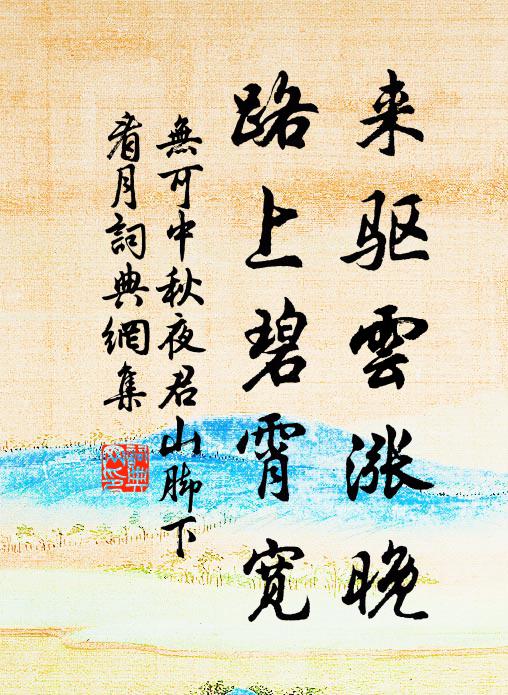 来驱雲漲晚
路上碧霄寬
無可中秋夜君山脚下
看月詞典網集